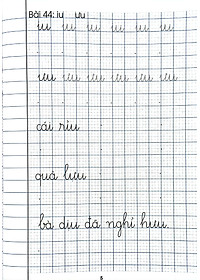 Bài 44: iu ưu
iu iu iu iu iu iu
ưu ưu ưu ưu ưu ưu
cái rìu
quả lựu
bà dìu đá nghỉ hưu
5